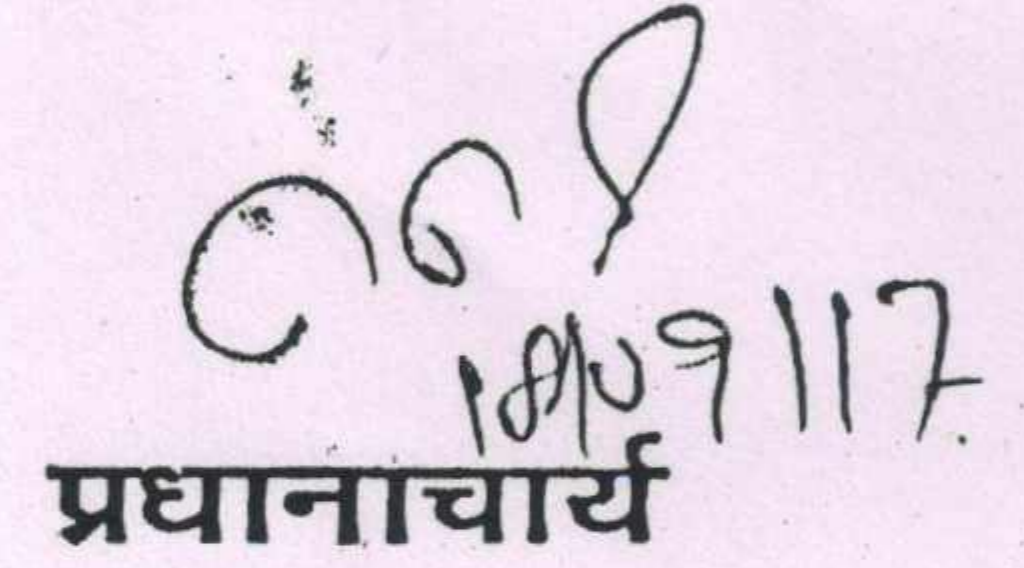 18/09/17
प्रधानाचार्य